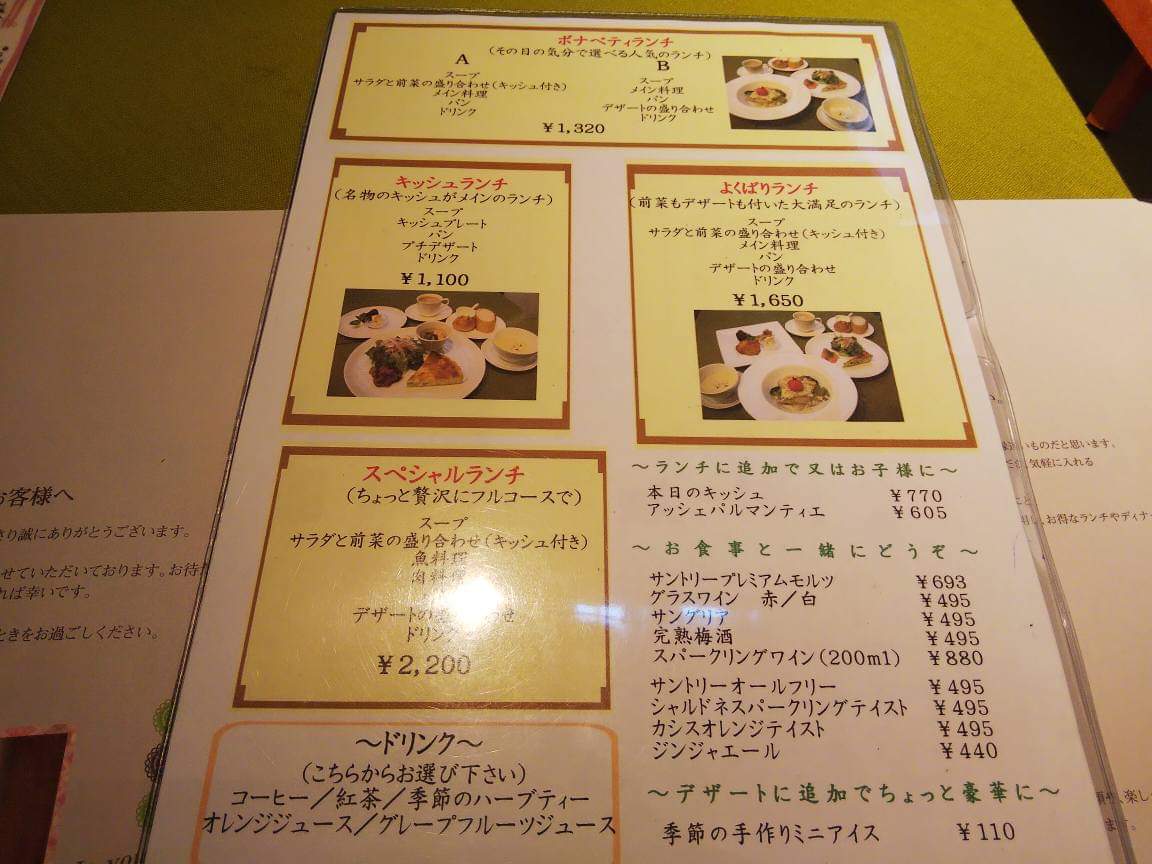 ボナペティランチ
(その日の気分で選べる人気のランチ)
A
スープ
サラダと前菜の盛り合わせ(キッシュ付き)
メイン料理
パン
ドリンク
B
スープ
メイン料理
パン
デザートの盛り合わせ
ドリンク
¥1,320
キッシュランチ
(名物のキッシュがメインのランチ)
スープ
キッシュプレート
パン
プチデザート
ドリンク
¥1,100
よくばりランチ
(前菜もデザートも付いた大満足のランチ)
スープ
サラダと前菜の盛り合わせ(キッシュ付き)
メイン料理
パン
デザートの盛り合わせ
ドリンク
¥1,650
スペシャルランチ
(ちょっと贅沢にフルコースで)
スープ
サラダと前菜の盛り合わせ(キッシュ付き)
魚料理
肉料理
デザートの盛り合わせ
ドリンク
¥2,200
～ドリンク～
(こちらからお選び下さい)
コーヒー／紅茶／季節のハーブティー
オレンジジュース／グレープフルーツジュース
～ランチに追加で又はお子様に～
本日のキッシュ ¥770
アッシェパルマンティエ ¥605
～お食事と一緒にどうぞ～
サントリープレミアムモルツ ¥693
グラスワイン 赤／白 ¥495
サングリア ¥495
完熟梅酒 ¥495
スパークリングワイン(200ml) ¥880
サントリーオールフリー ¥495
シャルドネスパークリングテイスト ¥495
カシスオレンジテイスト ¥495
ジンジャエール ¥440
～デザートに追加でちょっと豪華に～
季節の手作りミニアイス ¥110
お客様へ
誠にありがとうございます。
せていただいております。お待
れば幸いです。
ときをお過ごしください。
いものだと思います。
気軽に入れる
お得なランチやディナー